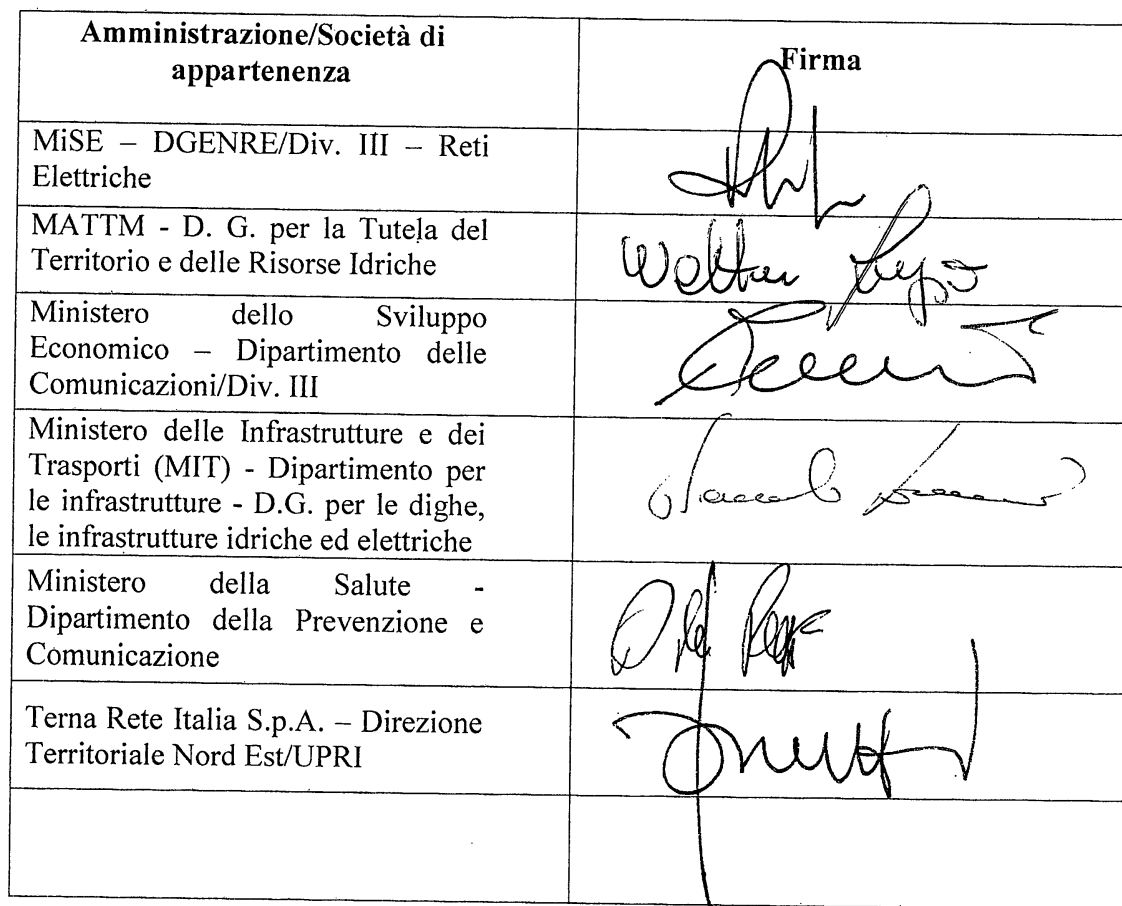 Amministrazione/Società di
appartenenza
Firma
MiSE – DGENRE/Div. III – Reti
Elettriche
MATTM - D. G. per la Tutela del
Territorio e delle Risorse Idriche
Walter
Ministero dello Sviluppo
Economico – Dipartimento delle
Comunicazioni/Div. III
Ministero delle Infrastrutture e dei
Trasporti (MIT) - Dipartimento per
le infrastrutture - D.G. per le dighe,
le infrastrutture idriche ed elettriche
Ministero della Salute -
Dipartimento della Prevenzione e
Comunicazione
Terna Rete Italia S.p.A. – Direzione
Territoriale Nord Est/UPRI